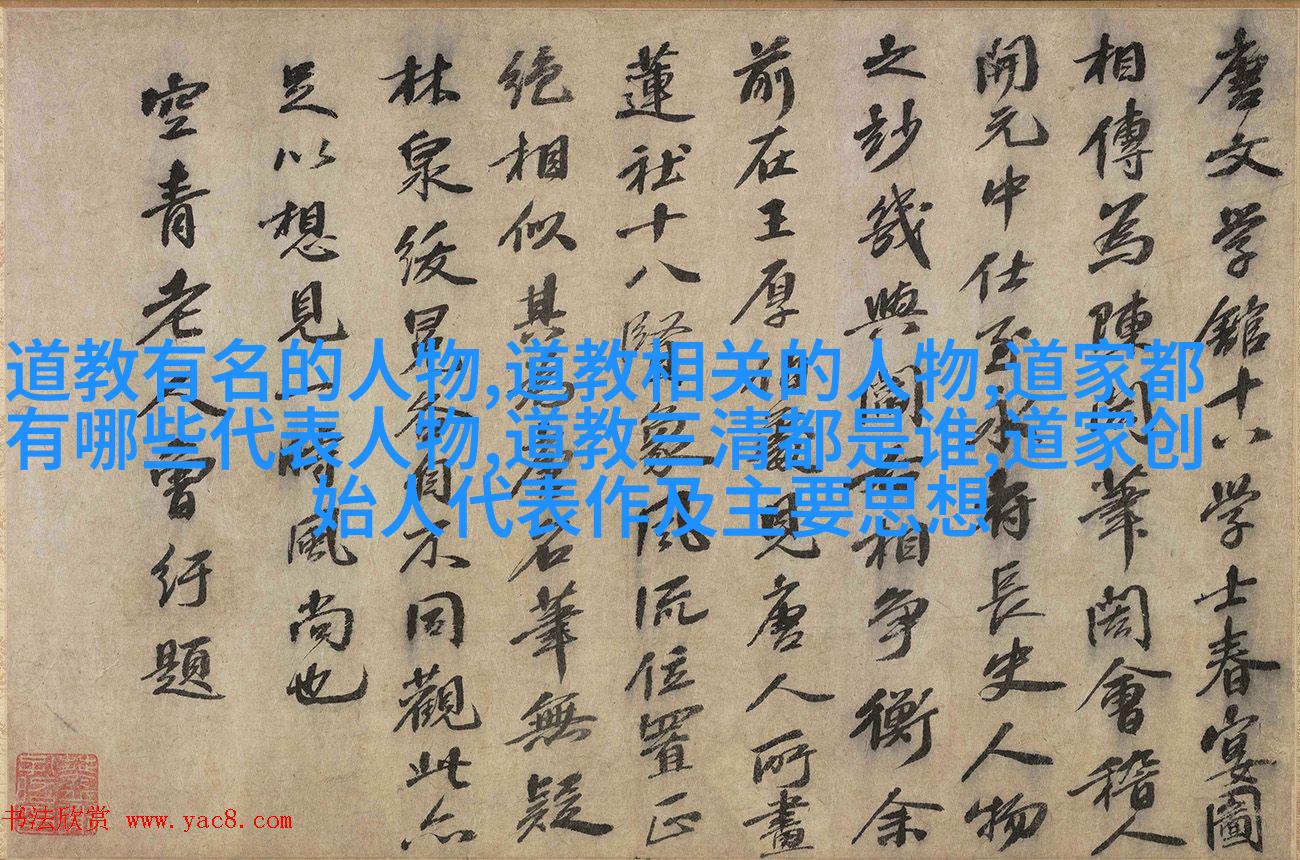 唐文学舘十八学士春宴圖
相傳為陳閎筆閎會稽人
開元中仕至永府長史人物
之玅幾與閻相争衡余
前在王厚見唐人所畫
蓮社十八賢象風流位置正
絶相似其為唐名筆無疑
林泉綬冕各自不同觀此亦
足以想見一時風尚也
空青老人曾紆題
道教有名的人物,道教相关的人物,道家都
有哪些代表人物,道教三清都是谁,道家创
始人代表作及主要思想
书法欣赏 www.yac8.com